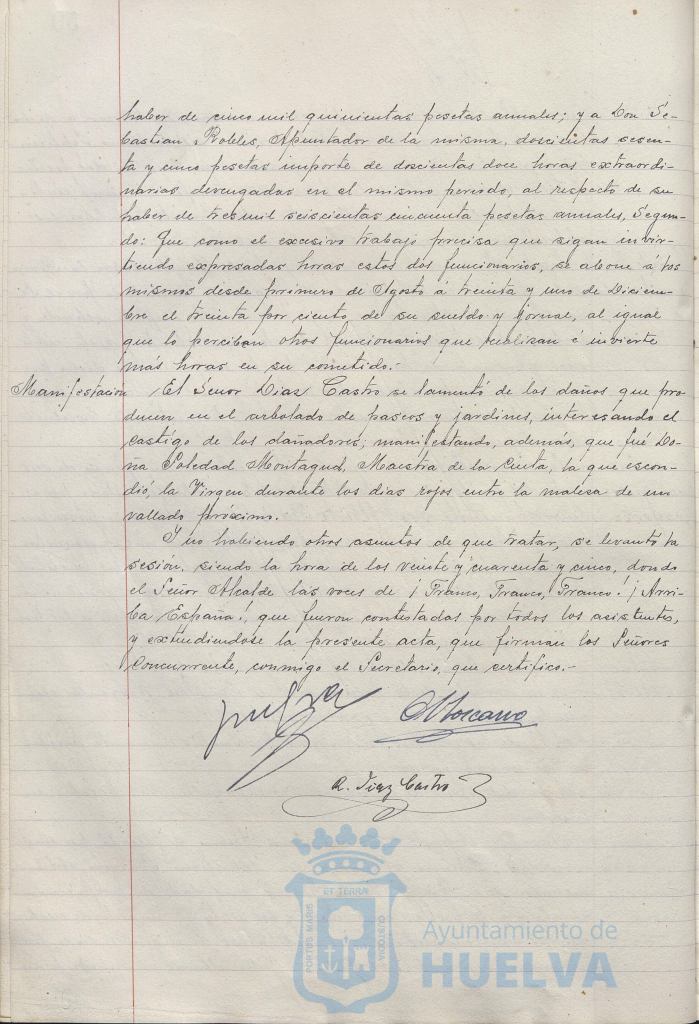 haber de cinco mil quinientas pesetas anuales; y a Don Se-
bastian Robles, Apuntador de la misma, doscientas sesen-
ta y cinco pesetas importe de doscientas doce horas extraordi-
narias devengadas en el mismo periodo, al respecto de su
haber de tres mil seiscientas cincuenta pesetas anuales, Segun-
do: Que como el excesivo trabajo precisa que sigan invir-
tiendo expresadas horas estos dos funcionarios, se abone á los
mismos desde primero de Agosto á treinta y uno de Diciem-
bre el treinta por ciento de su sueldo y jornal, al igual
que lo perciban otros funcionarios que realizan é invierte
más horas en su cometido.-
Manifestación / El Señor Diaz Castro se lamentó de los daños que pro
ducen en el arbolado de paseos y jardines, interesando el
castigo de los dañadores; manifestando, además, que fué Do-
ña Soledad Montagud, Maestra de la Cinta, la que escon-
dió, la Virgen durante los dias rojos entre la maleza de un
vallado próximo.
Y no habiendo otros asuntos de que tratar, se levantó la
sesión, siendo la hora de los veinte y cuarenta y cinco, dondo
el Señor Alcalde las voces de ¡Franco, Franco, Franco! ¡Arri-
ba España!, que fueron contestadas por todos los asistentes,
y extendiendose la presente acta, que firman los Señores
Concurrente, conmigo el Secretario, que certifico.-
Toscano
R. Diaz Castro
ET TERRA
PORTUS MARIS
CUSTODIA
Ayuntamiento de
HUELVA